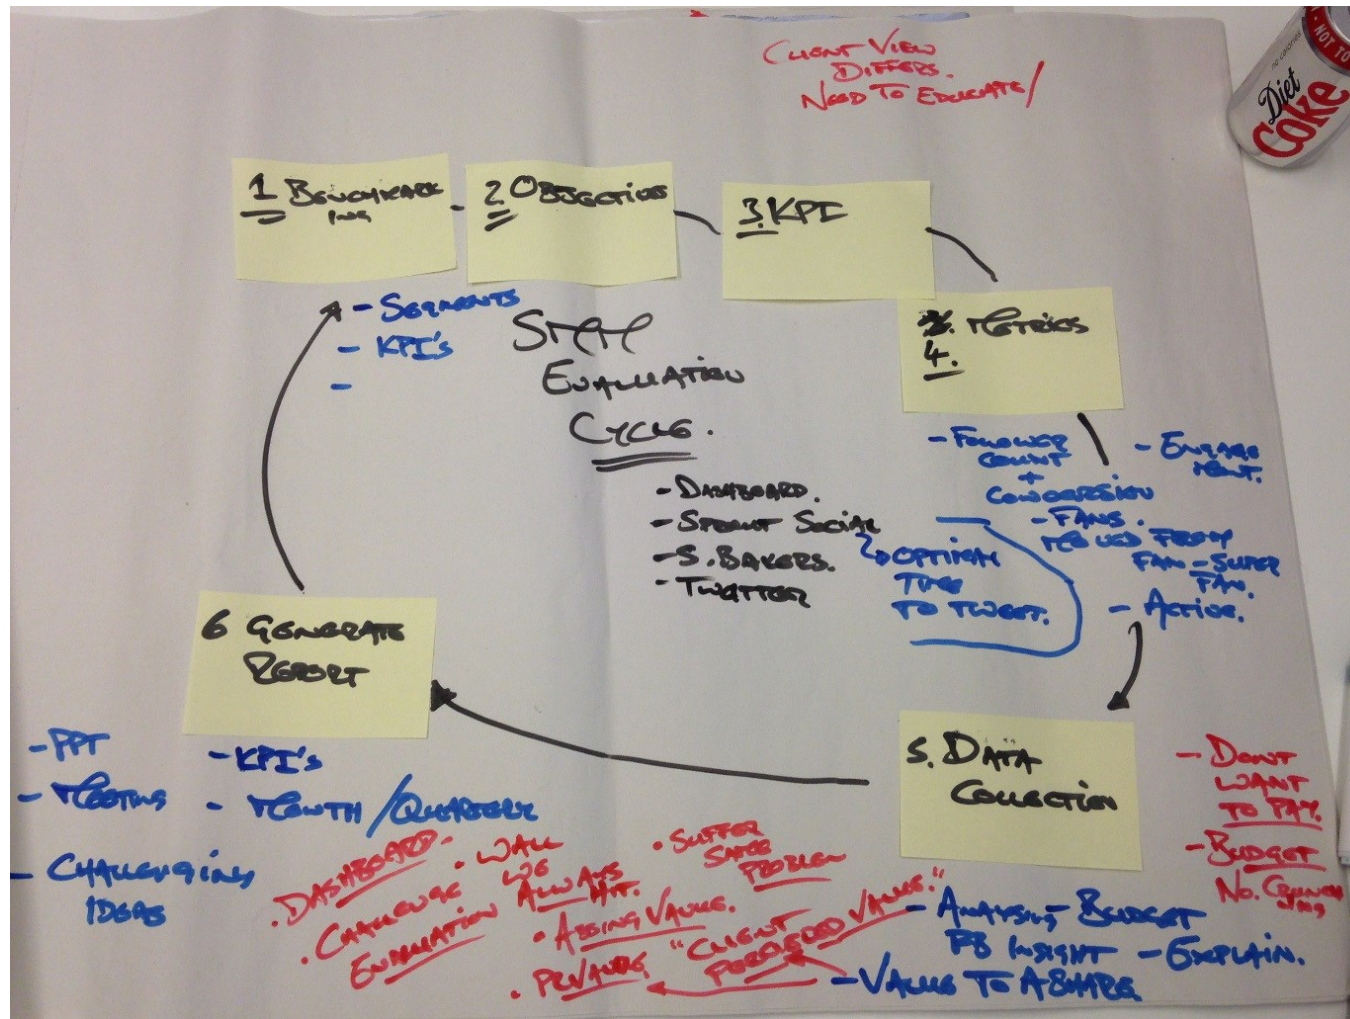 CLIENT VIEW
DIFFERS.
NEED TO EDUCATE/
no calories
Diet
Coke
NOT TO
1 BENCHMARK
ING
2. OBJECTIVES
3. KPI
3. METRICS
4.
- SEGMENTS
- KPI's
-
SMM
EVALUATION
CYCLE.
- DASHBOARD.
- SPROUT SOCIAL
- S. BAKERS.
- TWITTER
OPTIMAL
TIME
TO TWEET.
- FOLLOWER
COUNT
+
CONVERSION
- FANS.
MOVED FROM
FAN - SUPER
FAN.
- ACTIVE.
- ENGAGE
MENT.
6 GENERATE
REPORT
5. DATA
COLLECTION
- PPT
- MEETING
- CHALLENGING
IDEAS
- KPI's
- MONTH / QUARTERLY
. DASHBOARD.
. CHALLENGE
EVALUATION
. WALL
WE
ALWAYS
HIT.
. SUFFER
SAME
PROBLEM
. ADDING VALUE.
. PR VALUE
"CLIENT
PERCEIVED VALUE."
- DONT
WANT
TO PAY.
- BUDGET
- ANALYSIS
FB INSIGHT
- BUDGET
- EXPLAIN.
- VALUE TO A SHARE